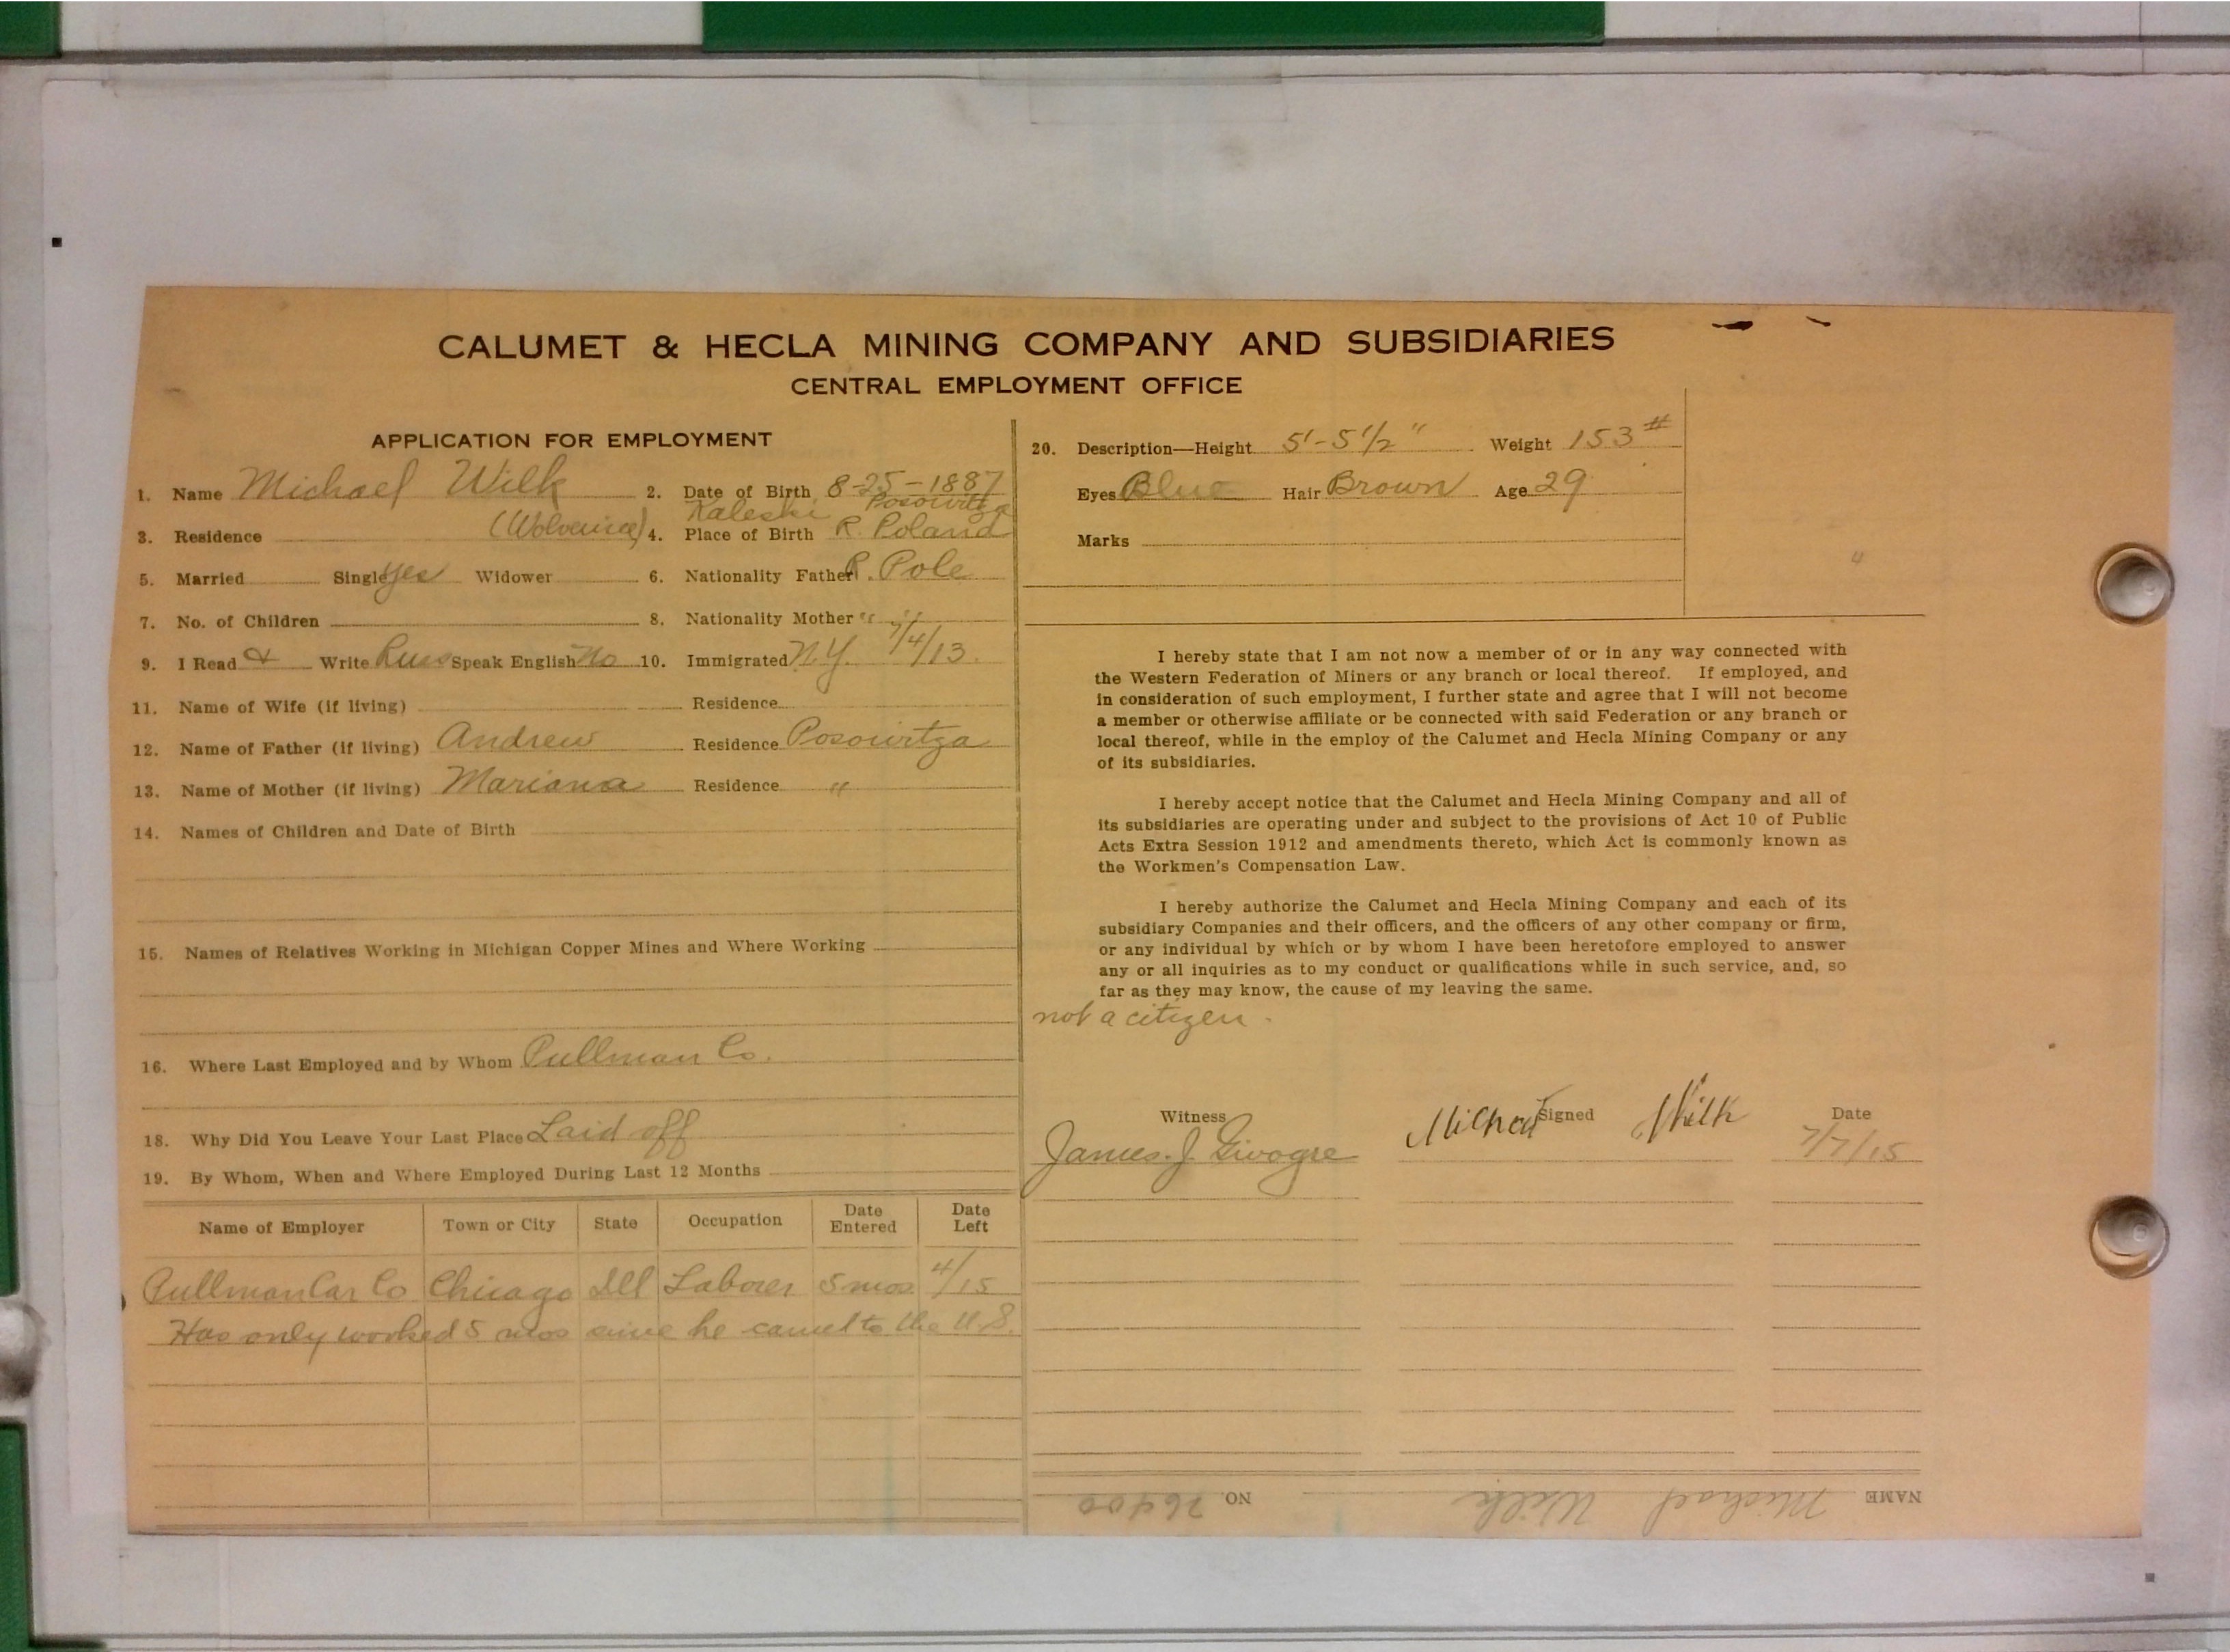 CALUMET & HECLA MINING COMPANY AND SUBSIDIARIES
CENTRAL EMPLOYMENT OFFICE
APPLICATION FOR EMPLOYMENT
1. Name Michael Wilk 2. Date of Birth 8-25-1887
Kaleski Posowitza
3. Residence (Wolverine) 4. Place of Birth R. Poland
5. Married Single yes Widower 6. Nationality Father R. Pole
7. No. of Children 8. Nationality Mother " "
9. I Read & Write Russ Speak English No 10. Immigrated N.Y. 7/4/13.
11. Name of Wife (if living) Residence
12. Name of Father (if living) Andrew Residence Posowitza
13. Name of Mother (if living) Mariana Residence "
14. Names of Children and Date of Birth
15. Names of Relatives Working in Michigan Copper Mines and Where Working
16. Where Last Employed and by Whom Pullman Co.
18. Why Did You Leave Your Last Place Laid off
19. By Whom, When and Where Employed During Last 12 Months
Name of Employer Town or City State Occupation Date Entered Date Left
Pullman Car Co Chicago Ill Laborer 5 mos. 4/15
Has only worked 5 mos since he came to the U.S.
20. Description—Height 5'-5 1/2" Weight 153#
Eyes Blue Hair Brown Age 29
Marks
I hereby state that I am not now a member of or in any way connected with
the Western Federation of Miners or any branch or local thereof. If employed, and
in consideration of such employment, I further state and agree that I will not become
a member or otherwise affiliate or be connected with said Federation or any branch or
local thereof, while in the employ of the Calumet and Hecla Mining Company or any
of its subsidiaries.
I hereby accept notice that the Calumet and Hecla Mining Company and all of
its subsidiaries are operating under and subject to the provisions of Act 10 of Public
Acts Extra Session 1912 and amendments thereto, which Act is commonly known as
the Workmen's Compensation Law.
I hereby authorize the Calumet and Hecla Mining Company and each of its
subsidiary Companies and their officers, and the officers of any other company or firm,
or any individual by which or by whom I have been heretofore employed to answer
any or all inquiries as to my conduct or qualifications while in such service, and, so
far as they may know, the cause of my leaving the same.
not a citizen.
Witness Signed Date
James. J. Wilk 7/7/15
NAME Michael Wilk NO. 26400